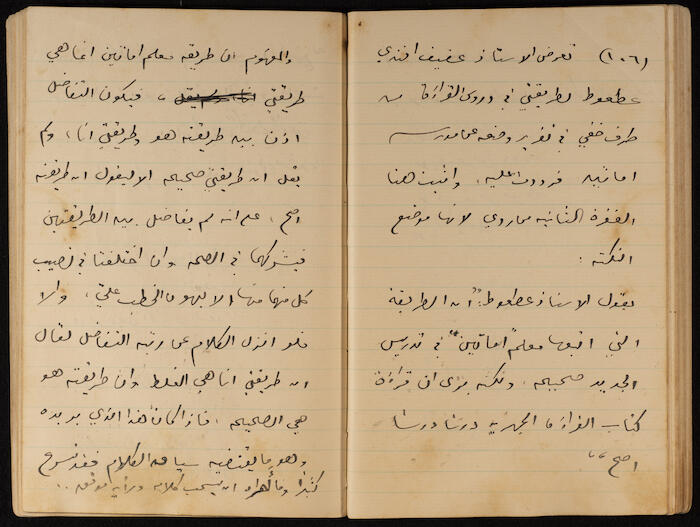 (١٠٦) تعرض الاستاذ عفيف افندي
عطعوط لطريقتي في دروس القراءة من
طرف خفي في تقرير وضعه عن مدرسة
اماتين فرددت عليه، واثبت هنا
الفقرة الثانية من ردي لانها موضع
النكتة :
يقول الاستاذ عطعوط: "ان الطريقة
التي اتبعها معلم "اماتين" في تدريس
الجديد صحيحة، ولكنه يرى ان قراءة
كتاب القراءة الجهرية درسًا درسًا
اصح"
والمفهوم ان طريقة معلم اماتين انما هي
طريقتي ، فيكون التفاضل
اذن بين طريقته هو وطريقتي انا، ولم
يقل ان طريقتي صحيحه الا ليقول ان طريقته
اصح، على انه لم يفاضل بين الطريقتين
فيشركهما في الصحة وان اختلفتا في نصيب
كل منهما منها الا ليهون الخطب علي، والا
فلو انزل الكلام عن رتبة التفاضل لقال
ان طريقتي انا هي الغلط وان طريقته هو
هي الصحيحه، فاذا كان هذا الذي يريده
وهو ما يقتضيه سياق الكلام فقد تسرع
كثيرًا وما أحراه ان يسحب كلامه